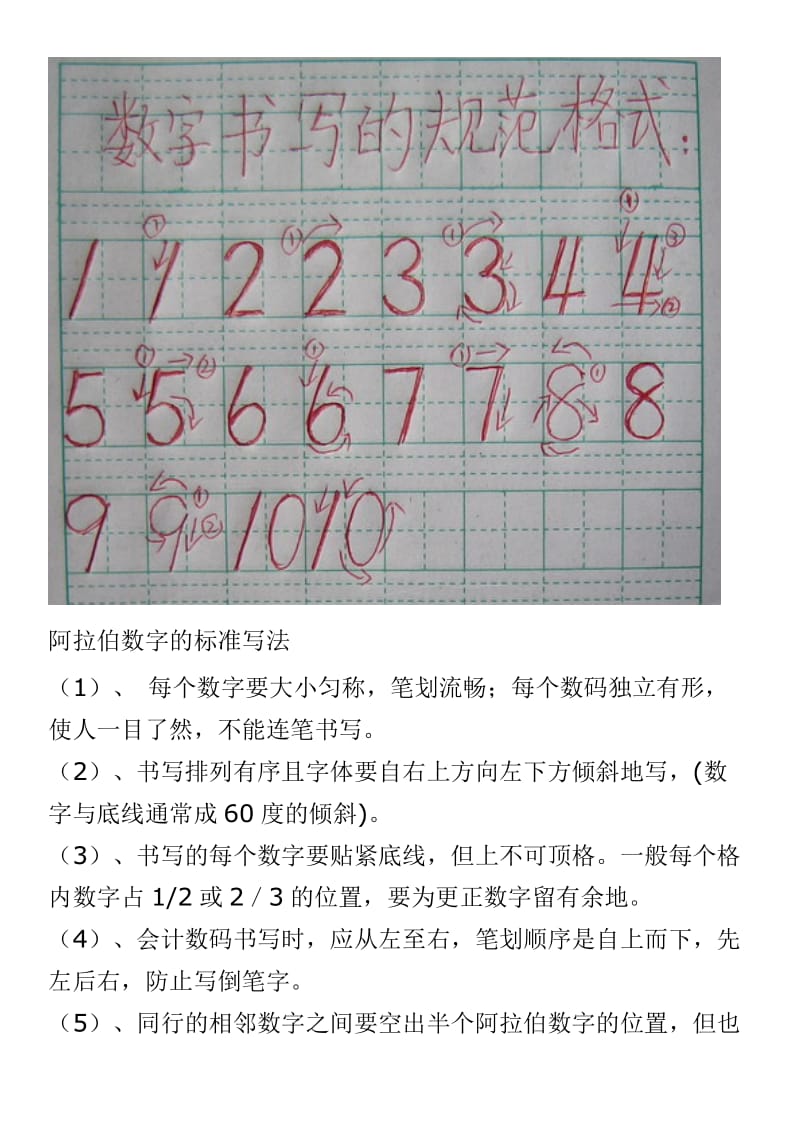 数字书写的规范格式：
1 1 ① 2 ① 2 3 ① 3 4 4 ① ③ ②
5 ① 5 ② 6 ① 6 7 ① 7 8 ① 8
9 9 ① ② 10 10
阿拉伯数字的标准写法
（1）、 每个数字要大小匀称，笔划流畅；每个数码独立有形，
使人一目了然，不能连笔书写。
（2）、书写排列有序且字体要自右上方向左下方倾斜地写，(数
字与底线通常成 60 度的倾斜)。
（3）、书写的每个数字要贴紧底线，但上不可顶格。一般每个格
内数字占 1/2 或 2／3 的位置，要为更正数字留有余地。
（4）、会计数码书写时，应从左至右，笔划顺序是自上而下，先
左后右，防止写倒笔字。
（5）、同行的相邻数字之间要空出半个阿拉伯数字的位置，但也